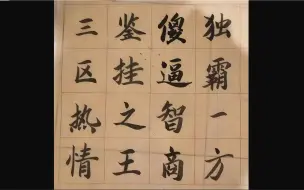 独霸一方
傻逼智商
鉴挂之王
三区热情